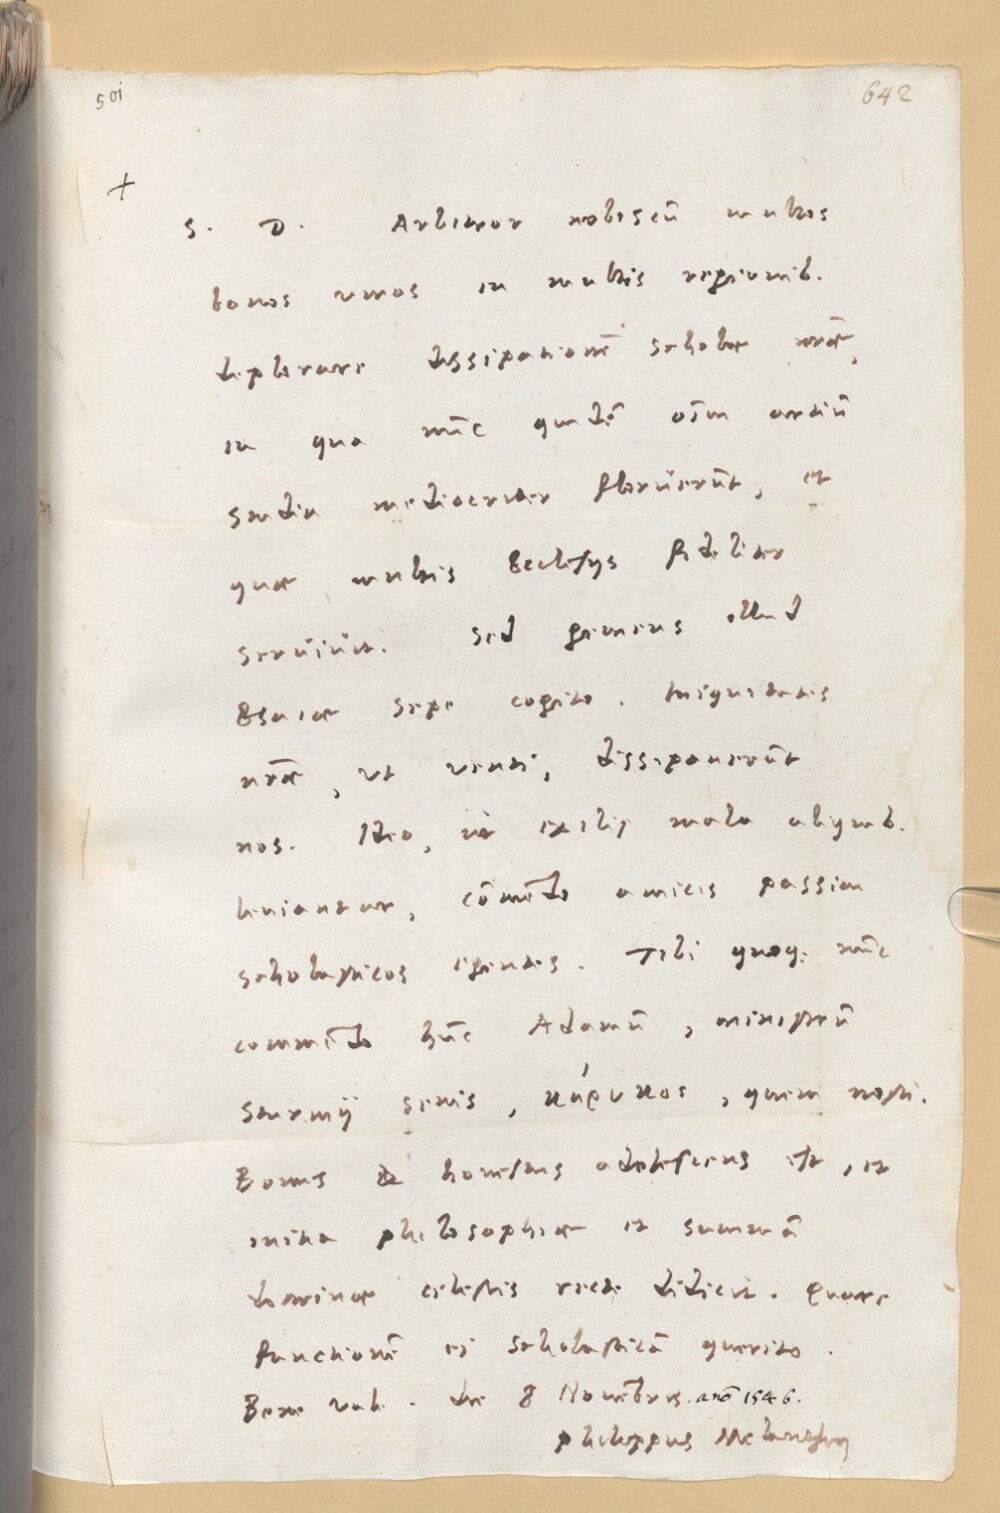 501
642
+
S. D. Arbitror nobiscū multos
bonos viros in multis regionib.
deplorare dissipationē scholæ nr̄æ,
in qua nūc quidē oīm artiū
studia mediocriter floruerūt, et
quæ multis Ecclesijs fideliter
seruiuit. Sed gemens illud
Esaiæ sepe cogito. Iniquitates
nr̄æ, vt venti, dissipauerūt
nos. Ideo, ut exilij mala aliquib.
leniantur, cōmēdo amicis passim
scholasticos egentes. Tibi quoq; nūc
commēdo hūc Adamū, ministrū
Sturmij senis, κήρυκος, quem nosti.
Bonus & honestus adolescens est, et
initia philosophiæ et summā
doctrinæ celestis recte didicit. Quare
functionē ei scholasticā querito.
Bene vale. die 8 Nouēbris. anō 1546.
philippus Melanthon